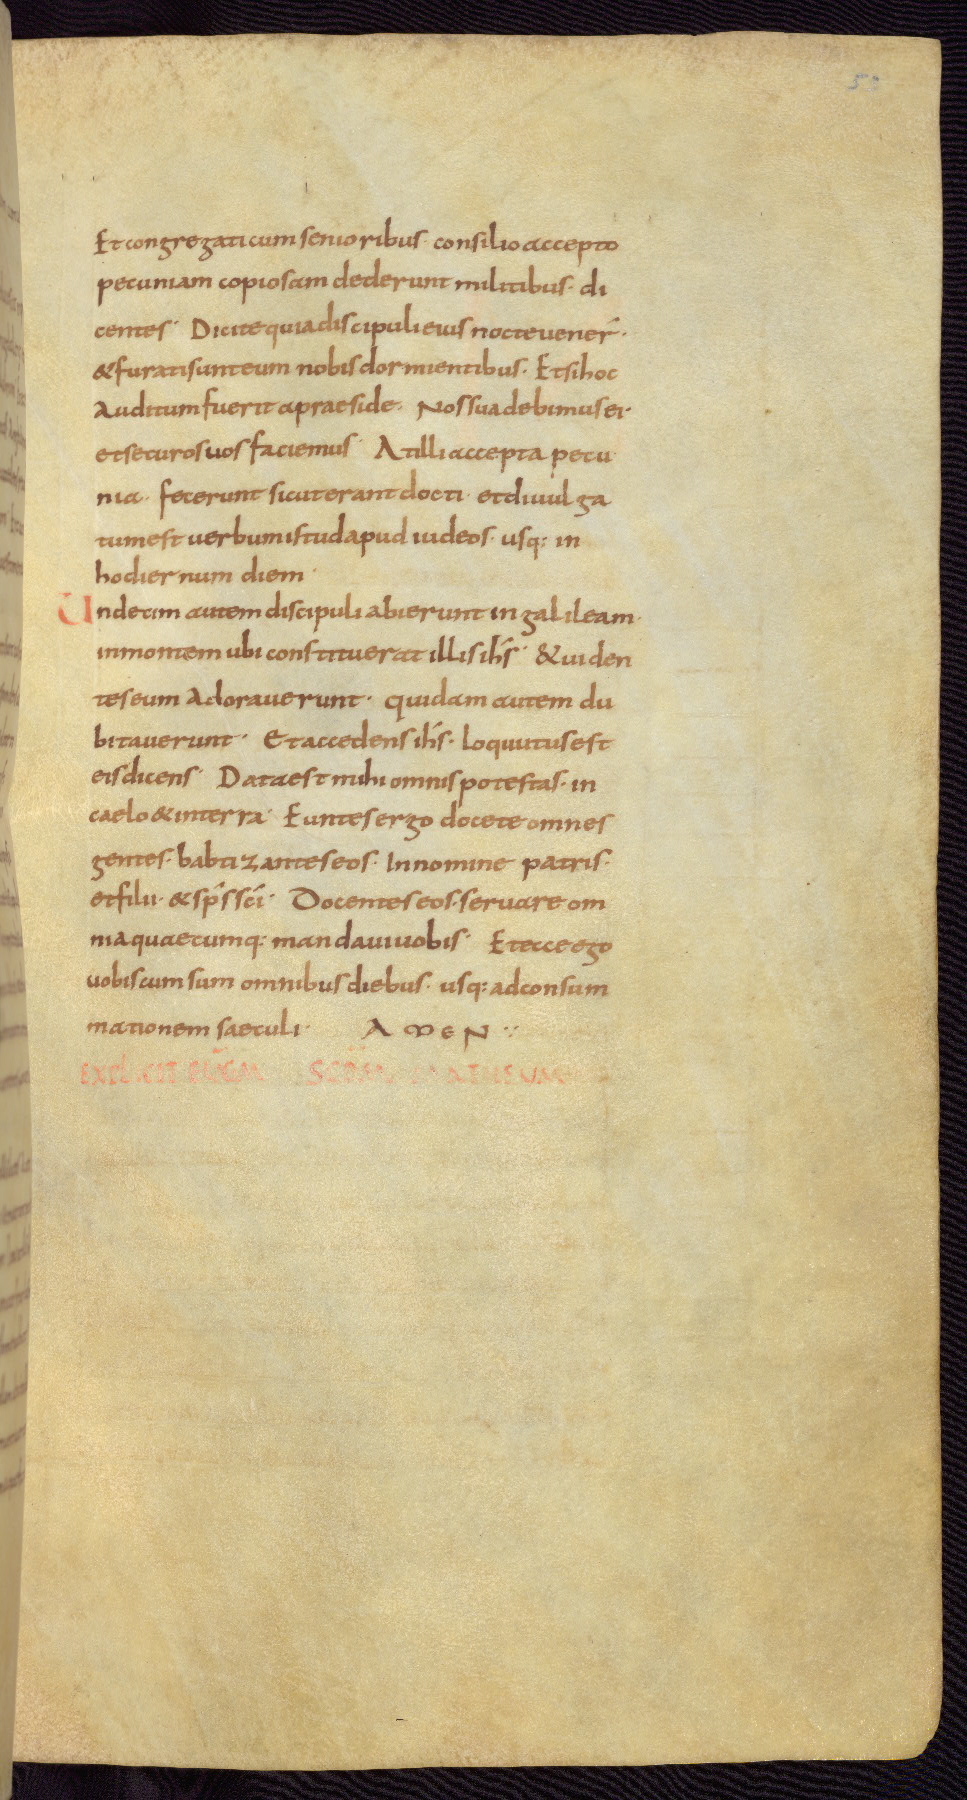 50
Et congregati cum senioribus· consilio accepto
pecuniam copiosam dederunt militibus· di
centes· Dicite quia discipuli eius nocte uener̄·
& furati sunt eum nobis dormientibus· Et si hoc
Auditum fuerit apraeside· Nos suadebimus ei·
et securos uos faciemus· At illi accepta pecu
nia· fecerunt sicut erant docti· et diuulga
tum est uerbum istud apud iudeos· usq: in
hodiernum diem·
Undecim autem discipuli abierunt in galileam·
in montem ubi constituerat illis ihs̄· & uiden
tes eum Adorauerunt· quidam autem du
bitauerunt· Et accedens ihs̄· loquutus est
eis dicens· Data est mihi omnis potestas· in
caelo & in terra· Euntes ergo docete omnes
gentes· babtizantes eos· In nomine patris·
et filii· & sps̄ scī· Docentes eos· seruare om
nia quaecumq: mandaui uobis· Et ecce ego
uobiscum sum omnibus diebus· usq: ad consum
mationem saeculi· AMEN
EXPLICIT SCDM MATHEUM